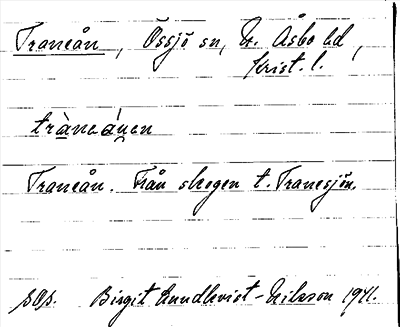 Traneån, Össjö sn, N. Åsbo hd,
Krist. l.
tràneánen
Traneån. Från skogen t. Tranesjön.
sOs. Birgit Sundkvist-Nilsson 1941.